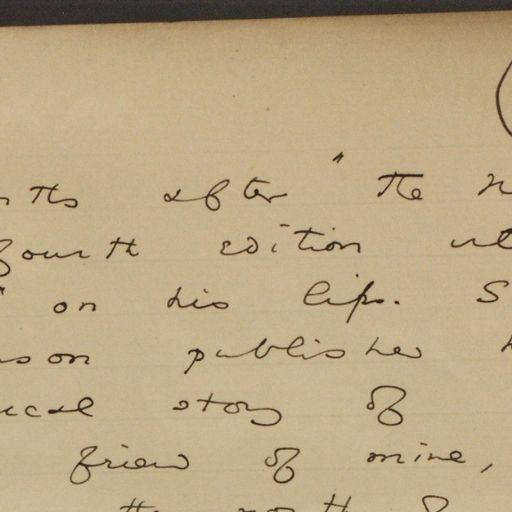 after " The
fourth edition
" on his lips.
published
story of
friend of mine,